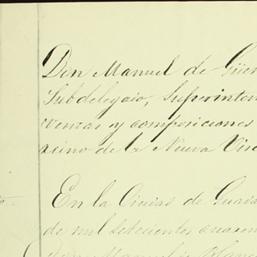 Don Manuel de Güen
Subdelegaio, Suprinten
ventas y composiciones
reino de la Nueva Visc
En la Ciuias de Guais
de mil setecientos cuaren